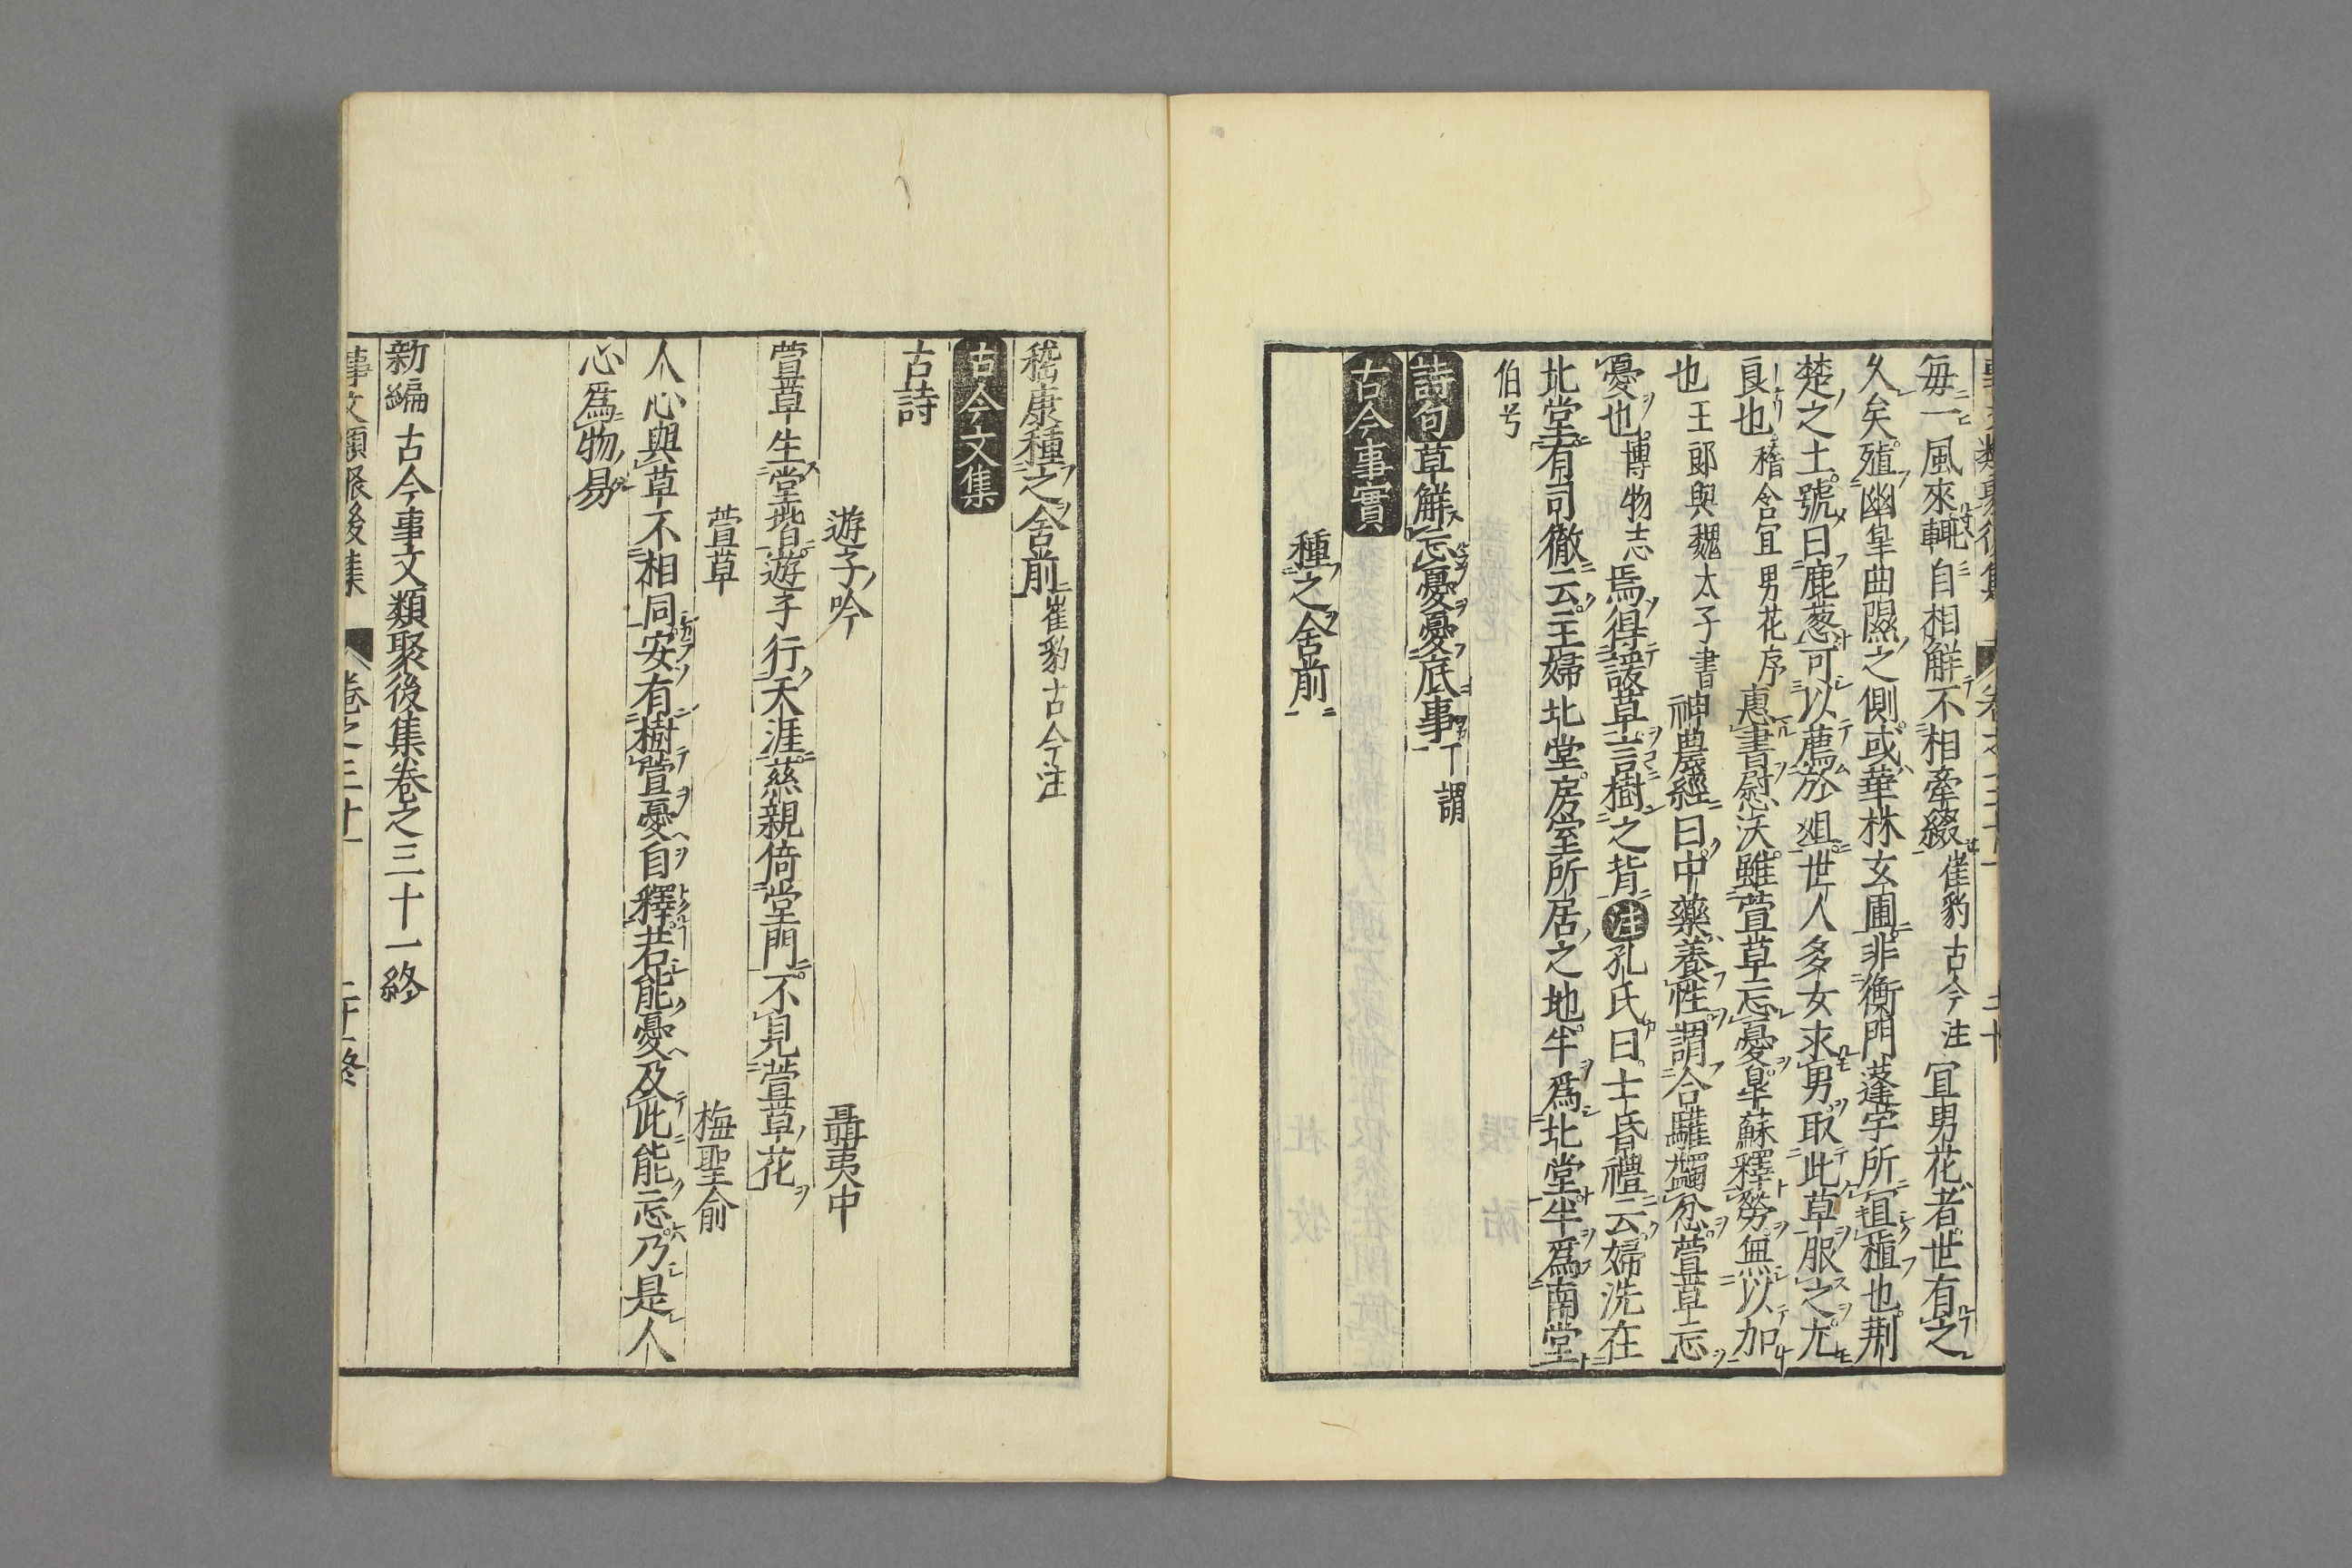 每一風來輙自相解不相牽綴崔豹古今注宜男花者世有之
久矣殖幽皐曲隰之側或華林玄圃非衡門蓬宇所宜植也荆
楚之土號曰鹿葱可以薦於俎世人多女求男取此草服之尤
良也稽含宜男花序惠書慰沃雖萱草忘憂皐蘇釋勞無以加
也王郎與魏太子書神農經曰中藥養性謂合驩蠲忿萱草忘
憂也博物志焉得諼草言樹之背注孔氏曰士昏禮云婦洗在
北堂有司徹云主婦北堂房室所居之地半爲北堂半爲南堂
伯兮
詩句草解忘憂憂底事丁謂
古今事實
種之舍前
嵇康種之舍前崔豹古今注
古今文集
古詩
遊子吟 聶夷中
萱草生堂堦遊子行天涯慈親倚堂門不見萱草花
萱草 梅聖俞
人心與草不相同安有樹萱憂自釋若能憂及此能忘乃是人
心爲物易
新編古今事文類聚後集卷之三十一終
事文類聚後集 卷之三十一 二十一終